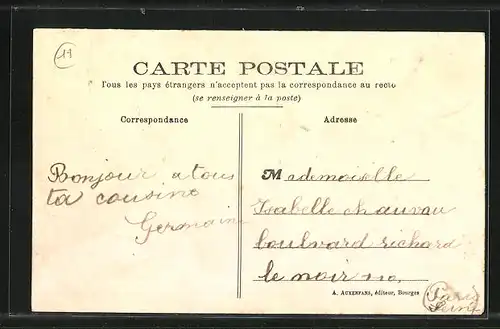 14
CARTE POSTALE
Tous les pays étrangers n'acceptent pas la correspondance au recto
(se renseigner à la poste)
Correspondance
Adresse
Bonjour a tous
ta cousine
Germaine
Mademoiselle
Isabelle chauvau
boulvard richard
le noir
A. AUXENFANS, éditeur, Bourges
Paris
Seine